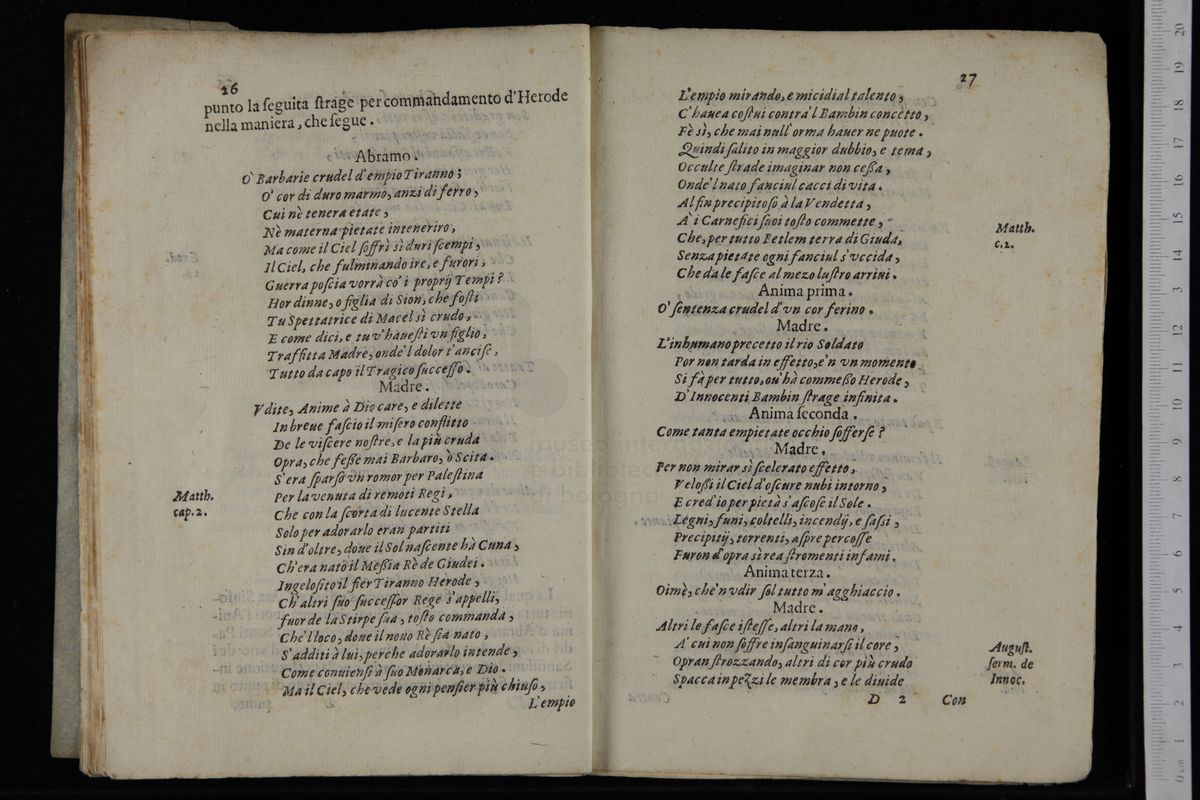 26
punto la ſeguita ſtrage per commandamento d'Herode
nella maniera, che ſegue.
Abramo.
O' Barbarie crudel d'empio Tiranno;
O' cor di duro marmo, anzi di ferro,
Cui nè tenera etate,
Nè materna pietate inteneriro,
Ma come il Ciel ſoffrì sì duri ſcempi,
Il Ciel, che fulminando ire, e furori,
Guerra poſcia vorrà co' i proprij Tempi?
Hor dinne, o figlia di Sion, che foſti
Tu Spettatrice di Macel sì crudo,
E come dici, e tu v'haueſti vn figlio,
Traffitta Madre, onde'l dolor t'anciſe,
Tutto da capo il Tragico ſucceſſo.
Madre.
Vdite, Anime à Dio care, e dilette
In breue faſcio il miſero conflitto
De le viſcere noſtre, e la più cruda
Opra, che feße mai Barbaro, ò Scita.
S'era ſparſo vn romor per Paleſtina
Matth.
cap. 2.
Per la venuta di remoti Regi,
Che con la ſcorta di lucente Stella
Solo per adorarlo eran partiti
Sin d'oltre, doue il Sol naſcente hà Cuna,
Ch'era nato il Meßia Rè de Giudei.
Ingeloſito il fier Tiranno Herode,
Ch'altri ſuo ſucceſſor Rege s'appelli,
fuor de la Stirpe ſua, toſto commanda,
Che'l loco, doue il nouo Rè ſia nato,
S'additi à lui, perche adorarlo intende,
Come conuienſi à ſuo Monarca, e Dio.
Ma il Ciel, che vede ogni penſier più chiuſo,
L'empio
27
L'empio mirando, e micidial talento,
C'hauea coſtui contra'l Bambin concetto,
Fè sì, che mai null'orma hauer ne puote.
Quindi ſalito in maggior dubbio, e tema,
Occulte ſtrade imaginar non ceßa,
Onde'l nato fanciul cacci di vita.
Al fin precipitoſo à la Vendetta,
A' i Carnefici ſuoi toſto commette,
Che, per tutto Betlem terra di Giuda,
Matth.
c. 2.
Senza pietate ogni fanciul s'vccida,
Che da le faſce al mezo luſtro arriui.
Anima prima.
O' ſentenza crudel d'vn cor ferino.
Madre.
L'inhumano precetto il rio Soldato
Por non tarda in effetto, e'n vn momento
Si fà per tutto, ou'hà commeßo Herode,
D'Innocenti Bambin ſtrage infinita.
Anima ſeconda.
Come tanta empietate occhio ſofferſe?
Madre.
Per non mirar sì ſcelerato effetto,
Veloßi il Ciel d'oſcure nubi intorno,
E cred'io per pietà s'aſcoſe il Sole.
Legni, funi, coltelli, incendij, e ſaſsi,
Precipitij, torrenti, aſpre percoſſe
Furon d'opra sì rea ſtromenti infami.
Anima terza.
Oimè, che'n vdir ſol tutto m'agghiaccio.
Madre.
Altri le faſce iſteſſe, altri la mano,
A' cui non ſoffre inſanguinarſi il core,
Opran ſtrozzando, altri di cor più crudo
Spacca in pezzi le membra, e le diuide
Auguſt.
ſerm. de
Innoc.
D 2
Con